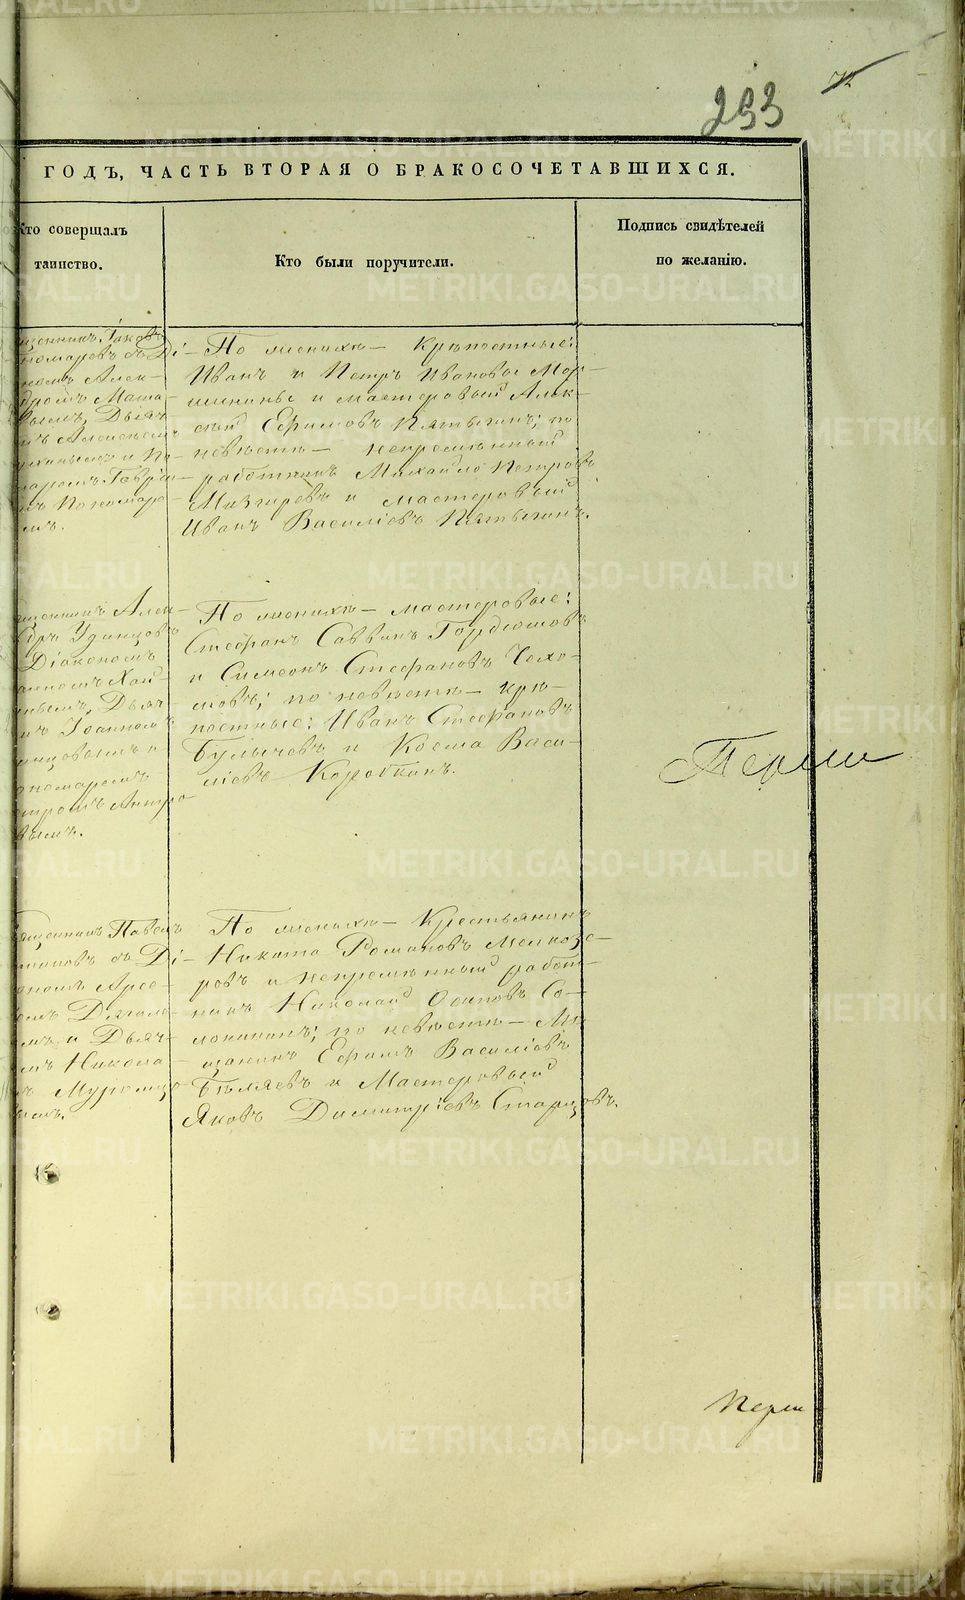 72
293
ГОДЪ, ЧАСТЬ ВТОРАЯ О БРАКОСОЧЕТАВШИХСЯ.
Кто совершалъ
таинство.
Кто были поручители.
Подпись свидѣтелей
по желанію.
щенникъ Іаковъ
номаревъ съ Ді-
кономъ Алек-
дромъ Мата-
вымъ, Дьяч-
мъ Алексеемъ
и По-
маремъ Гаврі-
мъ Пономаре-
мъ.
По женихѣ - Крѣпостные:
Иванъ и Петръ Ивановы Мор-
шинины и мастеровый Алек-
сѣй Ефимовъ Пятыгинъ; по
невѣстѣ - непремѣнный
работникъ Михайло Петровъ
Мизгиревъ и мастеровый
Иванъ Василіевъ Пятыгинъ.
щенникъ Алек-
дръ Удинцовъ
Діакономъ
анномъ Хлы-
нымъ, Дьяч-
мъ Іоанномъ
нцовымъ и
ономаремъ
тромъ Антро
вымъ.
По женихѣ - мастеровые:
Стефанъ Саввинъ Гордюшовъ
и Симеонъ Стефановъ Чехо-
мовъ; по невѣстѣ - крѣ-
постные: Иванъ Стефановъ
Булычевъ и Косма Васи-
ліевъ Коробкинъ.
Перми
щенникъ Павелъ
съ Ді-
кономъ Арсе-
мъ и Дьяч-
мъ Никола-
мъ Муромцо
вымъ.
По женихѣ - Крестьянинъ
Никита Романовъ Мелкозе-
ровъ и непремѣнный работ-
никъ Николай Осиповъ Со-
лонинъ; по невѣстѣ - Мѣ-
щанинъ Ефимъ Василіевъ
Бѣляевъ и Мастеровый
Яковъ Димитріевъ Старцовъ.
Перми
METRIKI.GASO-URAL.RU